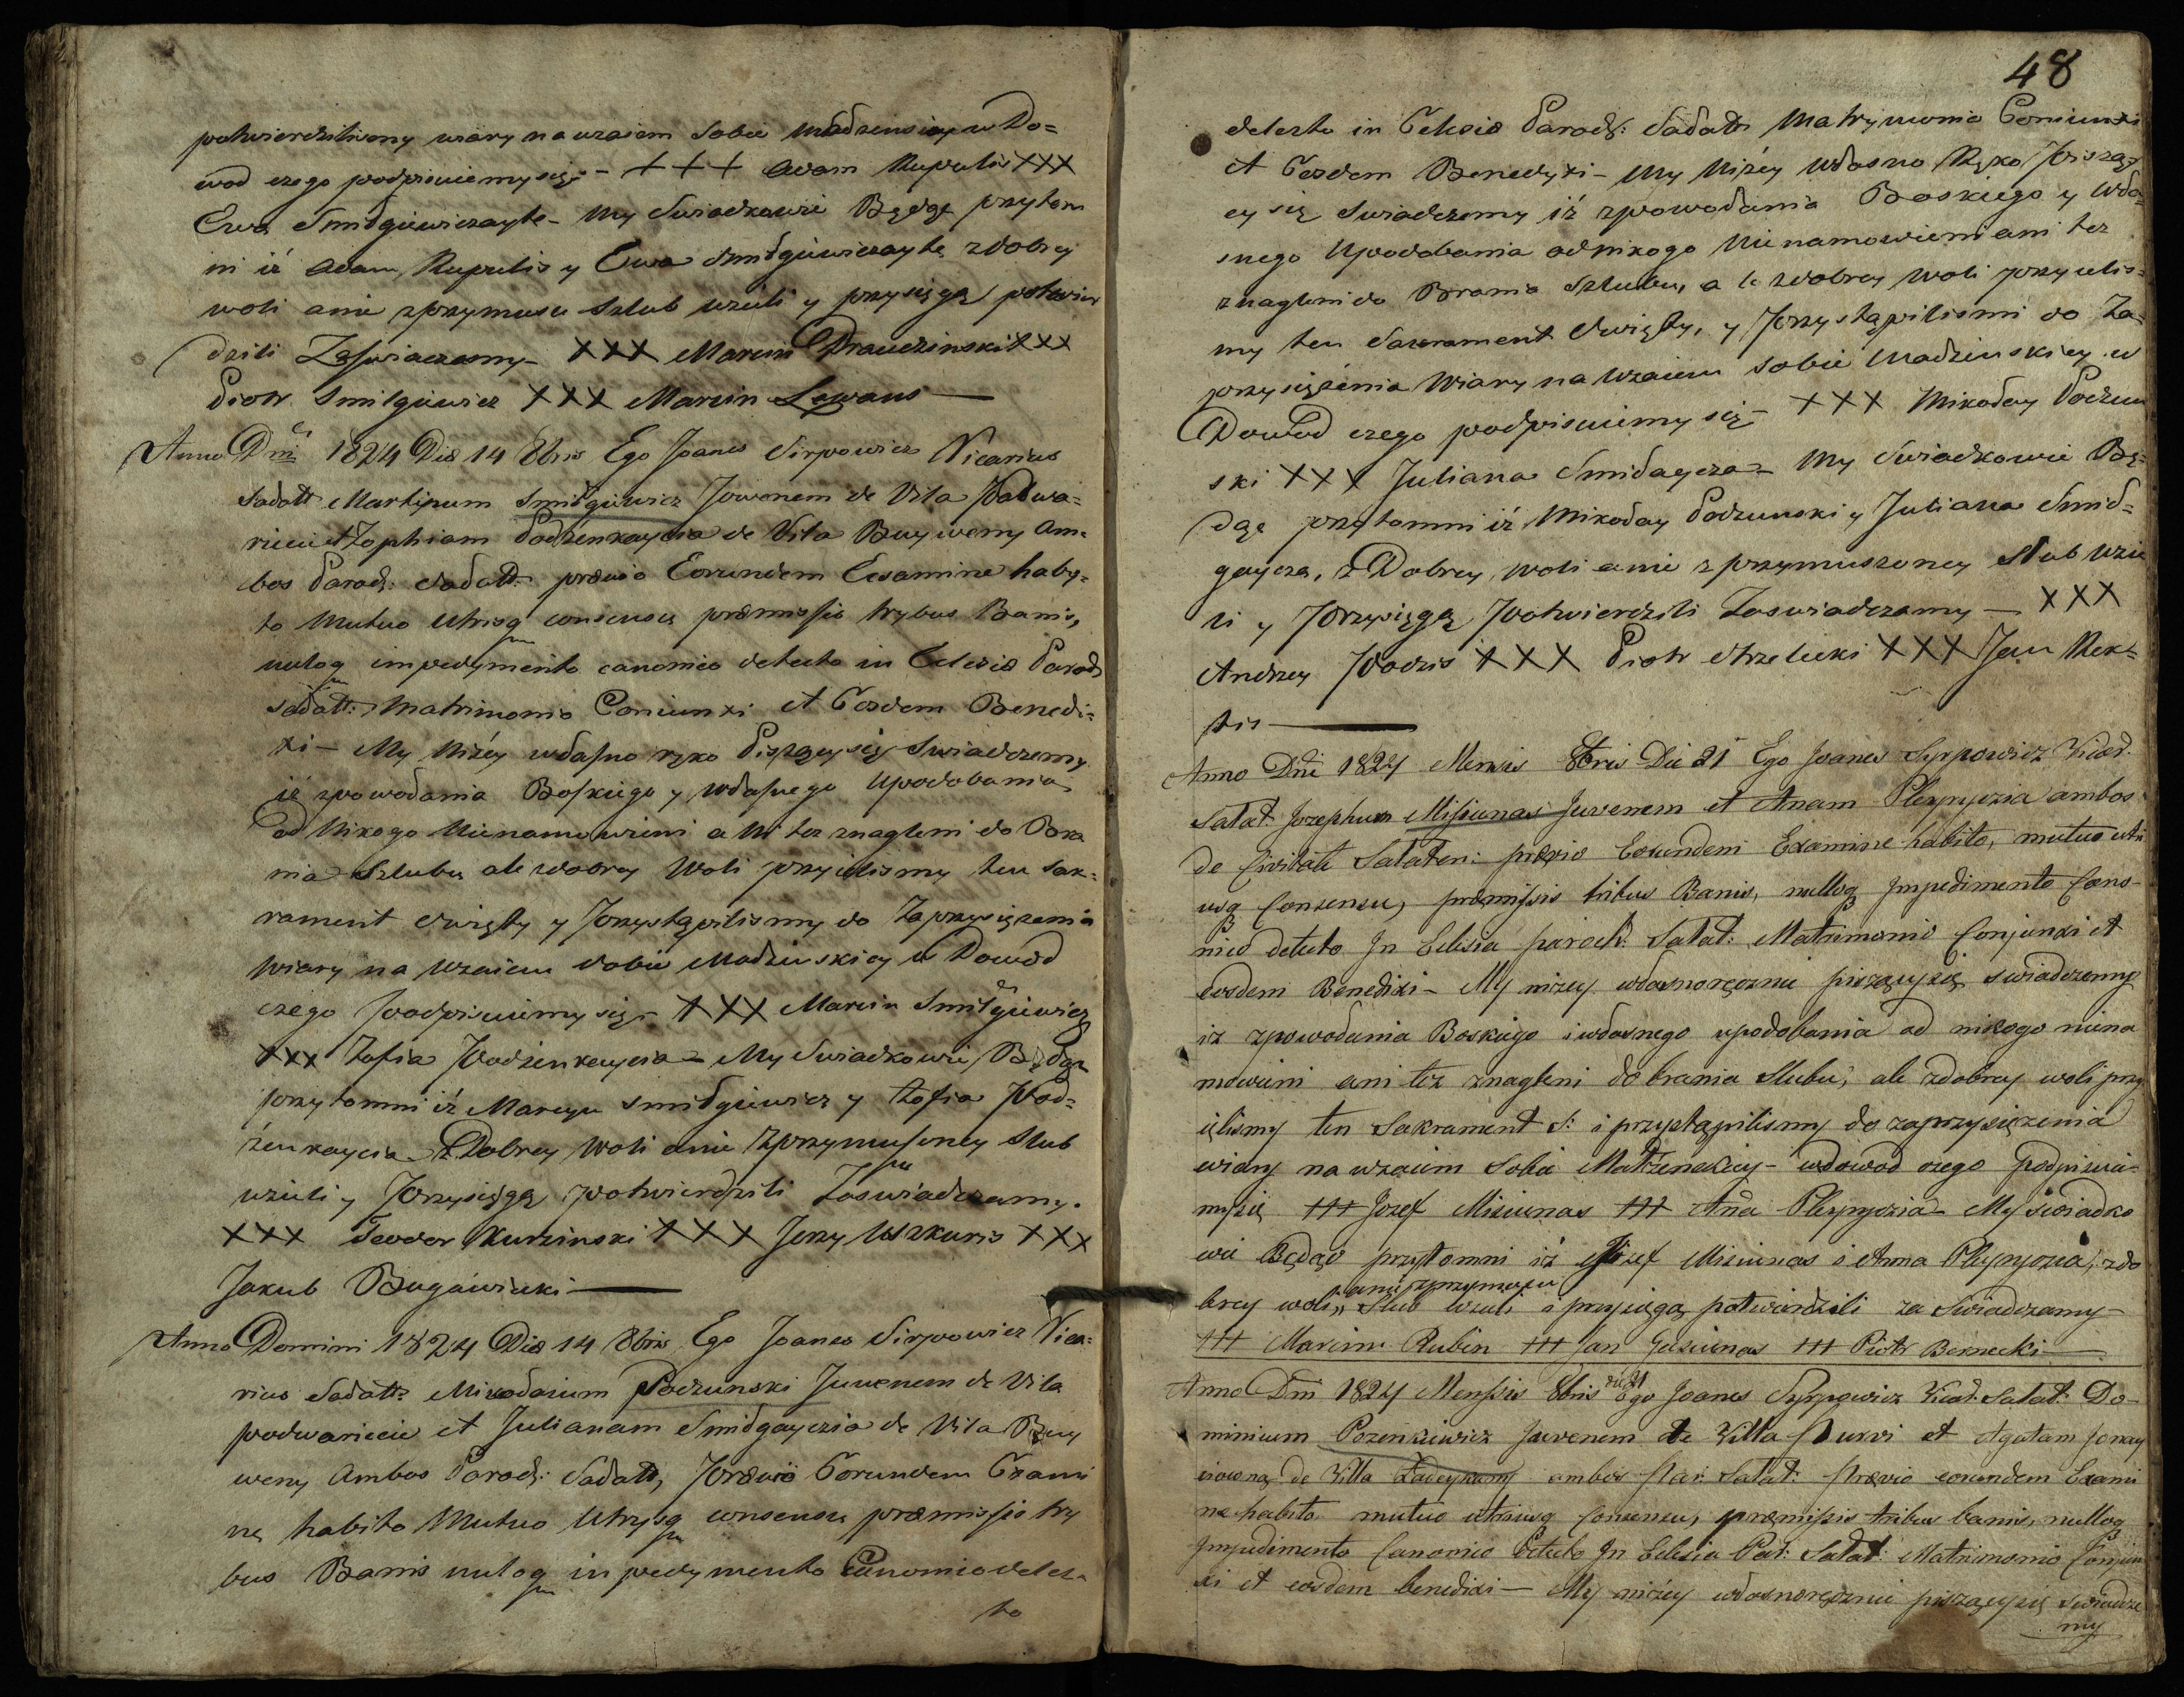 potwierdzilismy wiary na wzaiem sobie madzenskiey w Do=
wod czego podpisuiemy się:- +++ Adam Rupulis XXX
Ewa Smiłgiewiczayte - My Swiadkowie Będąć przytom
ni iż Adam Rupulis y Ewa Smiłgiewiczaytę zdobrey
woli anie zprzymusu szlub wzieli y przysięgą potwier
dzili Zaswiaczamy - XXX Marcin Drauczinski XXX
Piotr Smilgiewicz XXX Marcin Lewans —
Anno Dni 1824 Die 14 8bris Ego Joanes Sirpowicz Vicarius
Sadatt Martinum Smiłgiewicz Jowenem de Vila Podwa=
riecie et Zophiam Podzenkaycia de Vila Buyweny Am=
bos Paroch: Sadatt: prævio Eorundem Exsamine haby=
to Mutuo Utriusq consensu præmissis trybus Banis,
nuloq impedymento canonico detecto in Eclesia Paroch
sadatt: Matrimonio Coniunxi et Eosdem Benedi=
xi - My Niżéy wdasno ręko Piszącysię Swiadczemy
iż zpowodania Boskiego y wdasnego Upodobania
od Nikogo Nienamowieni ani tez znagleni do Bra
nia Szlubu ale zdobrey Woli przyielismy ten Sak=
rament Swięty y Przystąpilismy do Zaprzysięzenia
wiary na Wzaiem Sobie Madzinskiey w Dowod
czego Podpisuiemy się - XXX Marcin Smiłgiewicz
XXX Zofia Podzienkaycia - My Swiadkowie Będąc
przytomni iż Marcyn Smiłgiewicz y Zofia Pod=
zenkaycia z Dobrey Woli anie zprzymusoney Slub
wzieli y Przysięgą potwierdzili Zaswiadczamy.
XXX Teodor Kurzinski XXX Jerzy Uszkuris XXX
Jakub Bugawicki —
Anno Domini 1824 Die 14 8bris Ego Joanes Sirpowicz Vica=
rius Sadatt: Mikodaium Podzunski Juvenem de Vila
podwariecie et Julianam Smidgayczia de Vila Buy
weny Ambos Paroch: Sadatt, Prævio Eorundem Exami
nę habito Mutuo Utrysq consensu præmissis try
bus Banis nuloq in pedymento Canonico detec=
to
48
detecto in Eclesia Paroch: Sadatt Matrymonio Coniunxi
et Eosdem Benedyxi - My Niżéy wdasno Ręko Piszą=
cy się Swiadczemy iż zpowodania Boskiego y wda=
snego Upodobania odnikogo Nienamowieni ani tez
znagleni do Brania Szlubu, a le zdobrey woli przyielis=
my ten Sakrament Swięty, y Przystąpilismi do Za=
przysięzenia Wiary na Wzaiem sobie Madzinskiey w
Dowod czego podpisuiemy się - XXX Mikoday Podzun
ski XXX Juliana Smidaycza - My Swiadkowie Bę=
dąc przytomni iż Mikoday Podzunski y Juliana Smid=
gaycza, z Dobrey woli anie zprzymuszoney Slub wzie
li y Przysięgą Potwierdzili Zaswiadczamy — XXX
Andrzey Wodzis XXX Piotr Strzelicki XXX Jan Rek=
stis —
Anno Dñi 1824 Mensis 8bris Die 21 Ego Joanes Syrpowicz Vicar.
Satat: Josephum Misiunas Juvenem et Anam Plepyczia ambos
de Civitate Sataten: prævio Eorundem Examine habito, mutuo utri
usq Consensu, præmissis tribus Banis, nulloq Impedimento Cano-
nico detecto In Eclesia paroch: Satat: Matrimonio Conjunxi et
eosdem Benedixi - My niżey wdasnoręcznie piszącysię swiadczemy
iż zpowodania Boskiego i wdasnego upodobania od nikogo niena
mowieni ani też znagleni do brania Slubu, ale zdobrey woli przy
ięlismy ten Sakrament S: i przystąpilismy do zaprzysięzenia
wiary na wzaiem Sobie Matżenskiey - wdowod czego podpisuie
mysię +++ Jozef Misiunas +++ Ana Plepyczia - My swiadko
wie Będąc przytomni iż Jozef Misiunas i Anna Plepyczia, zdo
brey woli, anie zprzymusu Slub wzieli i przysięgą potwierdzili za swiadczamy -
+++ Marcin Rubin +++ Jan Juziunas +++ Piotr Bernecki —
Anno Dni 1824 Mensis 8bris die 21 Ego Joanes Syrpowicz Vicar. Satat: Do-
minicum Pozenkiewicz Juvenem de Villa Skurvi et Agatam Jonay
ciowną de Villa Ladeykany ambos Par: Satat: Prævio eorundem Exami
ne habito mutuo utriusq Consensu, præmissis tribus banis, nulloq
Impedimento Canonico detecto In Eclesia Par: Satat: Matrimonio Conjun
xi et eosdem benedixi — My niżéy wdasnoręcznie piszącysię swiadcze
my